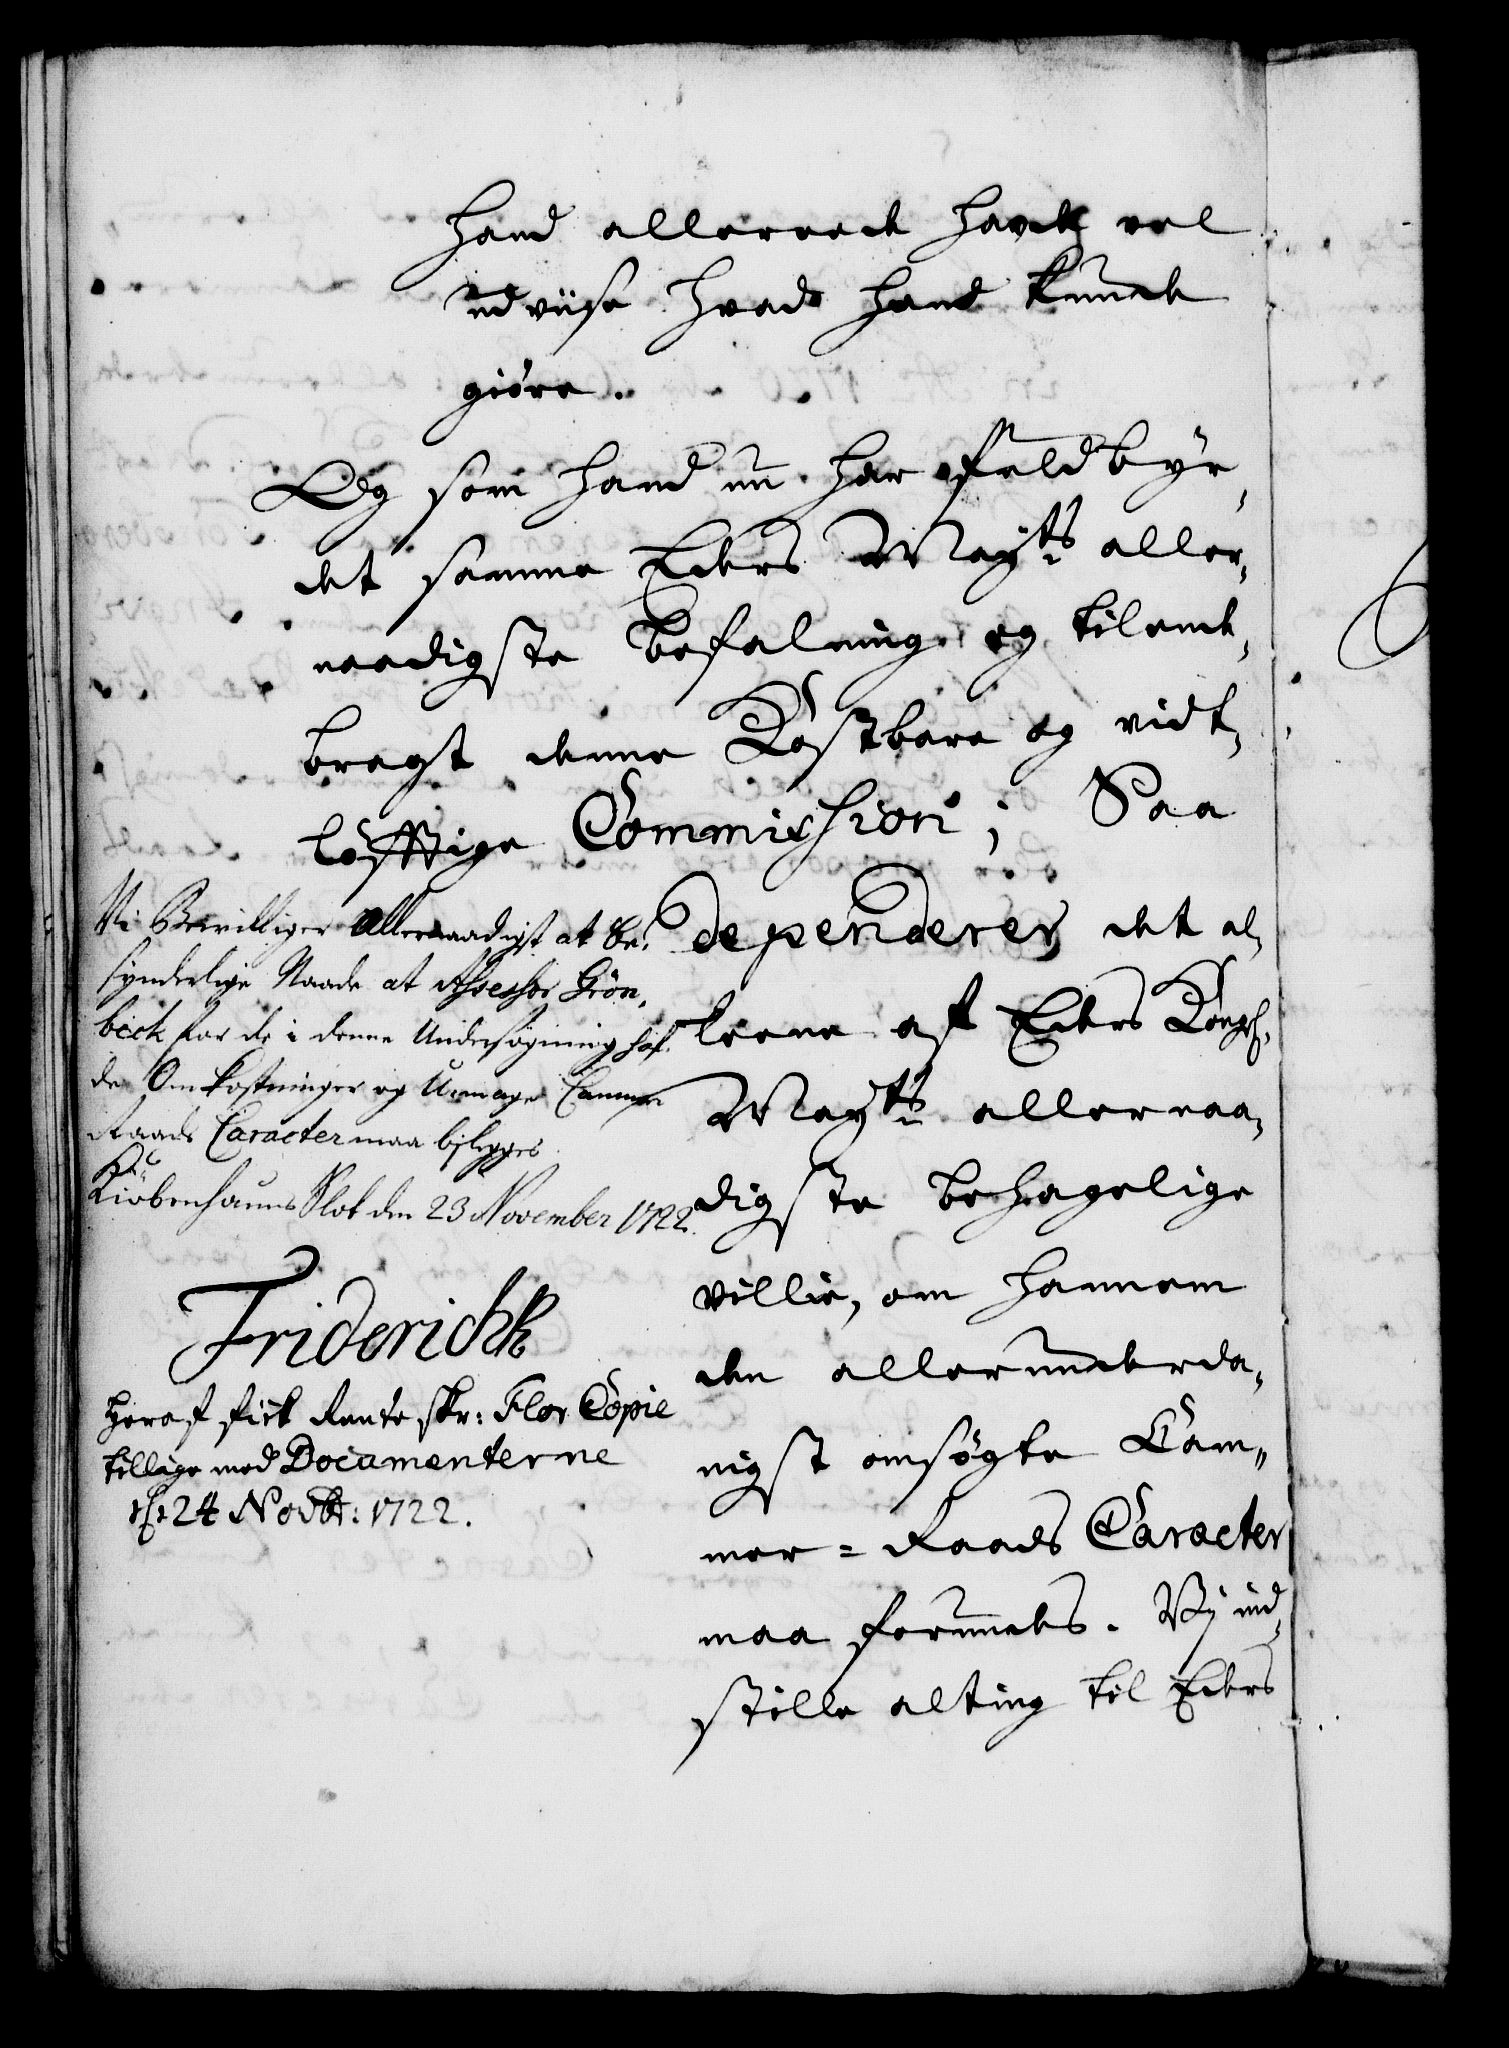 hand allereede hafde vel
udviise hvad hand kunde
giöre.
Og som hand nu har fuldbyr,
det samme Eders Mayts aller,
naadigste befalning og tilende,
bragt denne Kostbare og vidt,
löfftige Commission; Saa
dependerer det al,
leene af Eders Kongl.
Mayts allernaa,
digste behagelige
villie, om hannem
den allerunderda,
nigst omsögte Cam,
mer=Raads Caracter
maa forundes. Vj ind,
stille alting til Eders
Vi Bevilliger Allernaadigst at Be,
synderlige Naade at Assessor Grön,
beck for de i denne Undersögning haf,
de Omkostninger og Umage Cammer
Raads Caracter maa bjlegges
Kiöbenhauns Slot den 23 November 1722.
Friderich R
Heraf fick Rente skr: Flor Copie
tillige med Documenterne
d: 24 Novbr: 1722.